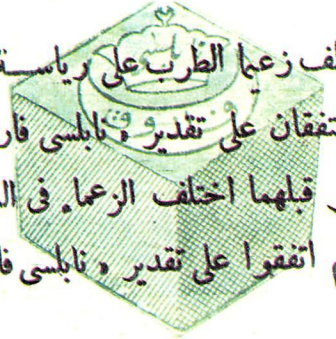 زعيما الطرب على رياسة
تتفقان على تقدير « نابلسى فار
قبلهما اختلف الزعماء فى ال
اتفقوا على تقدير « نابلسى فا